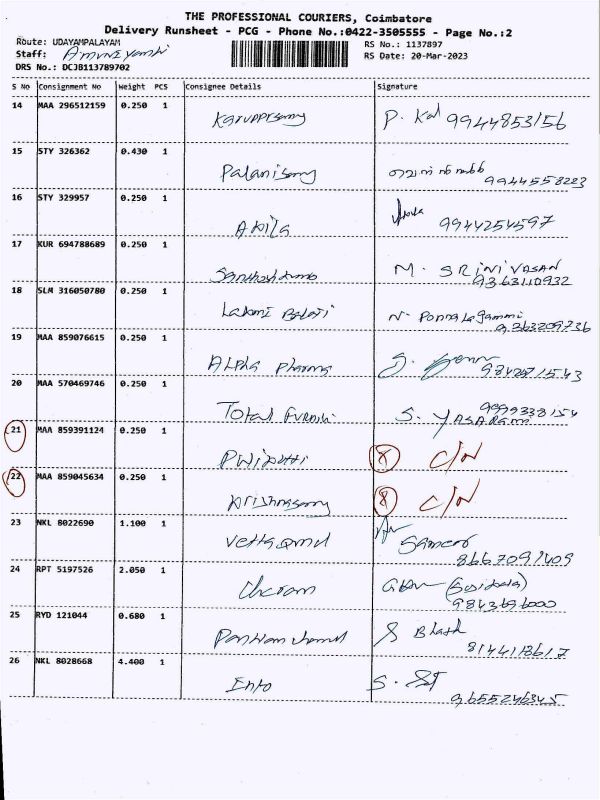 THE PROFESSIONAL COURIERS, Coimbatore
Delivery Runsheet - PCG - Phone No.:0422-3505555 - Page No.:2
Route: UDAYAMPALAYAM RS No.: 1137897
Staff: RS Date: 20-Mar-2023
DRS No.: DCJB113789702
S No Consignment No Weight PCS Consignee Details Signature
14 MAA 296512159 0.250 1 Karuppisamy P. Kal 9944853156
15 STY 326362 0.430 1 Palanisamy
9944558223
16 STY 329957 0.250 1 Akila 9944254597
17 KUR 694788689 0.250 1 M. SRINIVASAN
9363110932
18 SLM 316050780 0.250 1 Laxmi Balaji N. Ponnalagammi
9363209736
19 MAA 859076615 0.250 1 Alpha Pharma
20 MAA 570469746 0.250 1 Total Furni S. YASARAMI
21 MAA 859391124 0.250 1 C/N
22 MAA 859045634 0.250 1 Krishnasamy C/N
23 NKL 8022690 1.100 1 Sameer
8667091409
24 RPT 5197526 2.050 1 Cheram
9843696000
25 RYD 121044 0.680 1
8144118617
26 NKL 8028668 4.400 1 Info S.
9655246345